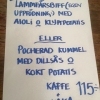 LAMMFÄRSBIFF (EGEN
UPPFÖDNING) MED
AIOLI O KLYFTPOTATIS
ELLER
POCHERAD KUMMEL
MED DILLSÅS O
KOKT POTATIS
KAFFE
115:-